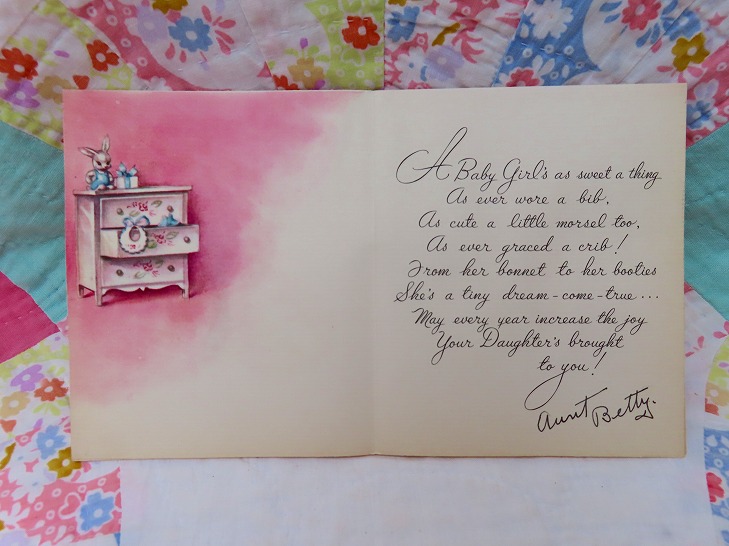 A Baby Girl's as sweet a thing
As ever wore a bib,
As cute a little morsel too,
As ever graced a crib!
From her bonnet to her booties
She's a tiny dream-come-true...
May every year increase the joy
Your Daughter's brought
to you!
Aunt Betty.